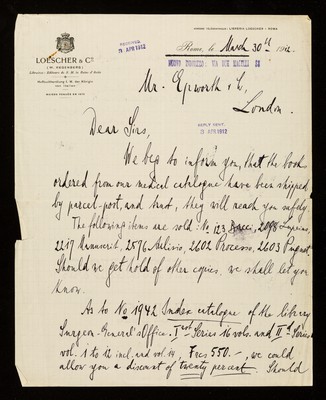 LOESCHER & Co.
(W. REGENBERG)
RECEIVED
1 APR 1912
Rome, le March 30th 1912.
NUOVO INDIRIZZO: VIA DUE MACELLI 88
Mr. Epworth & Co,
London.
REPLY SENT
APR 1912
Dear Sirs,
We beg to inform you, that the books
ordered from our medical catalogue have been shipped
by parcel-post, and trust, they will reach you safely.
The following items are sold: No. 123 Bacci, 2098
2217 Manuscrit, 2576 Milivio, 2602 Processo, 2603 Pugnet.
Should we get hold of other copies, we shall let you
know.
As to No 1942 Index catalogue of the library
Surgeon General's Office. Ist Series 16 vols. and IId Series
vol. 1 to 12 incl. and vol. 14, Frcs 550.-, we could
allow you a discount of twenty percent. Should